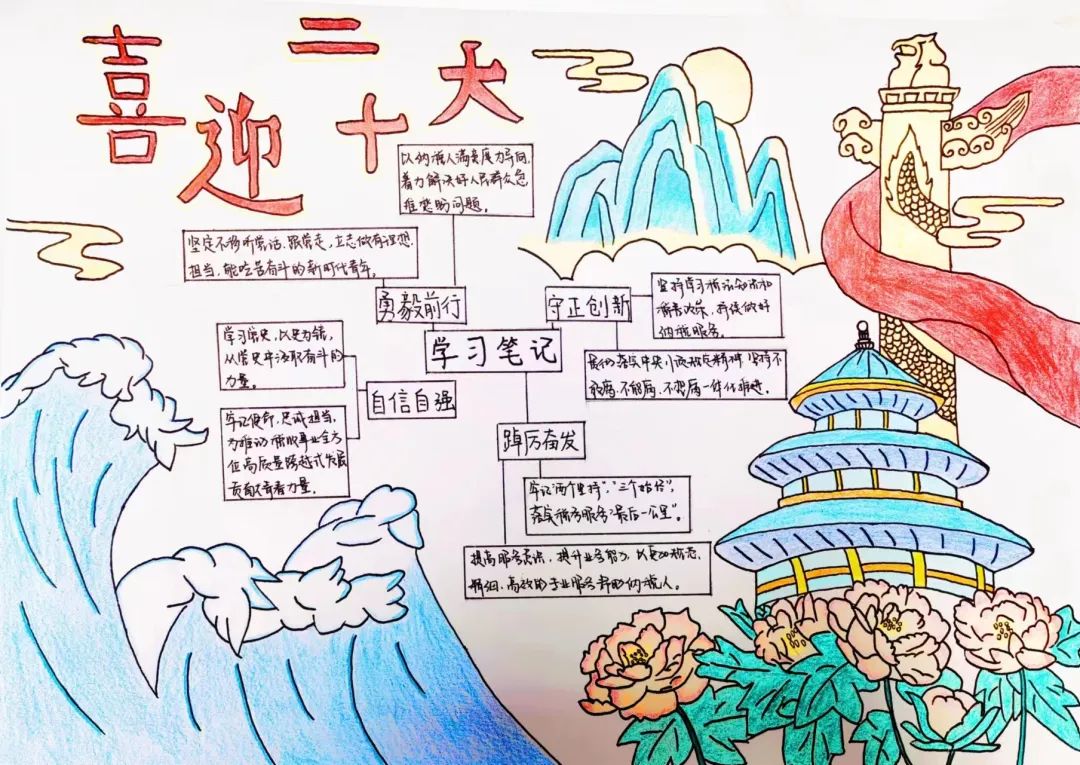 喜迎二十大
以纳税人满意度为导向,
着力解决好人民群众急
难愁盼问题。
坚定不移听党话、跟党走,立志做有理想、
担当、能吃苦奋斗的新时代青年。
勇毅前行
守正创新
坚持学习税法知识和
税费政策,持续做好
纳税服务。
学习笔记
学习党史,以史为镜,
从党史中汲取奋斗的
力量。
不敢腐、不能腐、不想腐一体化推进。
自信自强
牢记使命、忠诚担当,
为推动税收事业全方
位高质量跨越式发展
贡献青春力量。
踔厉奋发
牢记"两个坚持"、
落实税务服务"最后一公里"。
提高服务意识,提升业务能力,以更加
精细、高效的专业服务帮助纳税人。